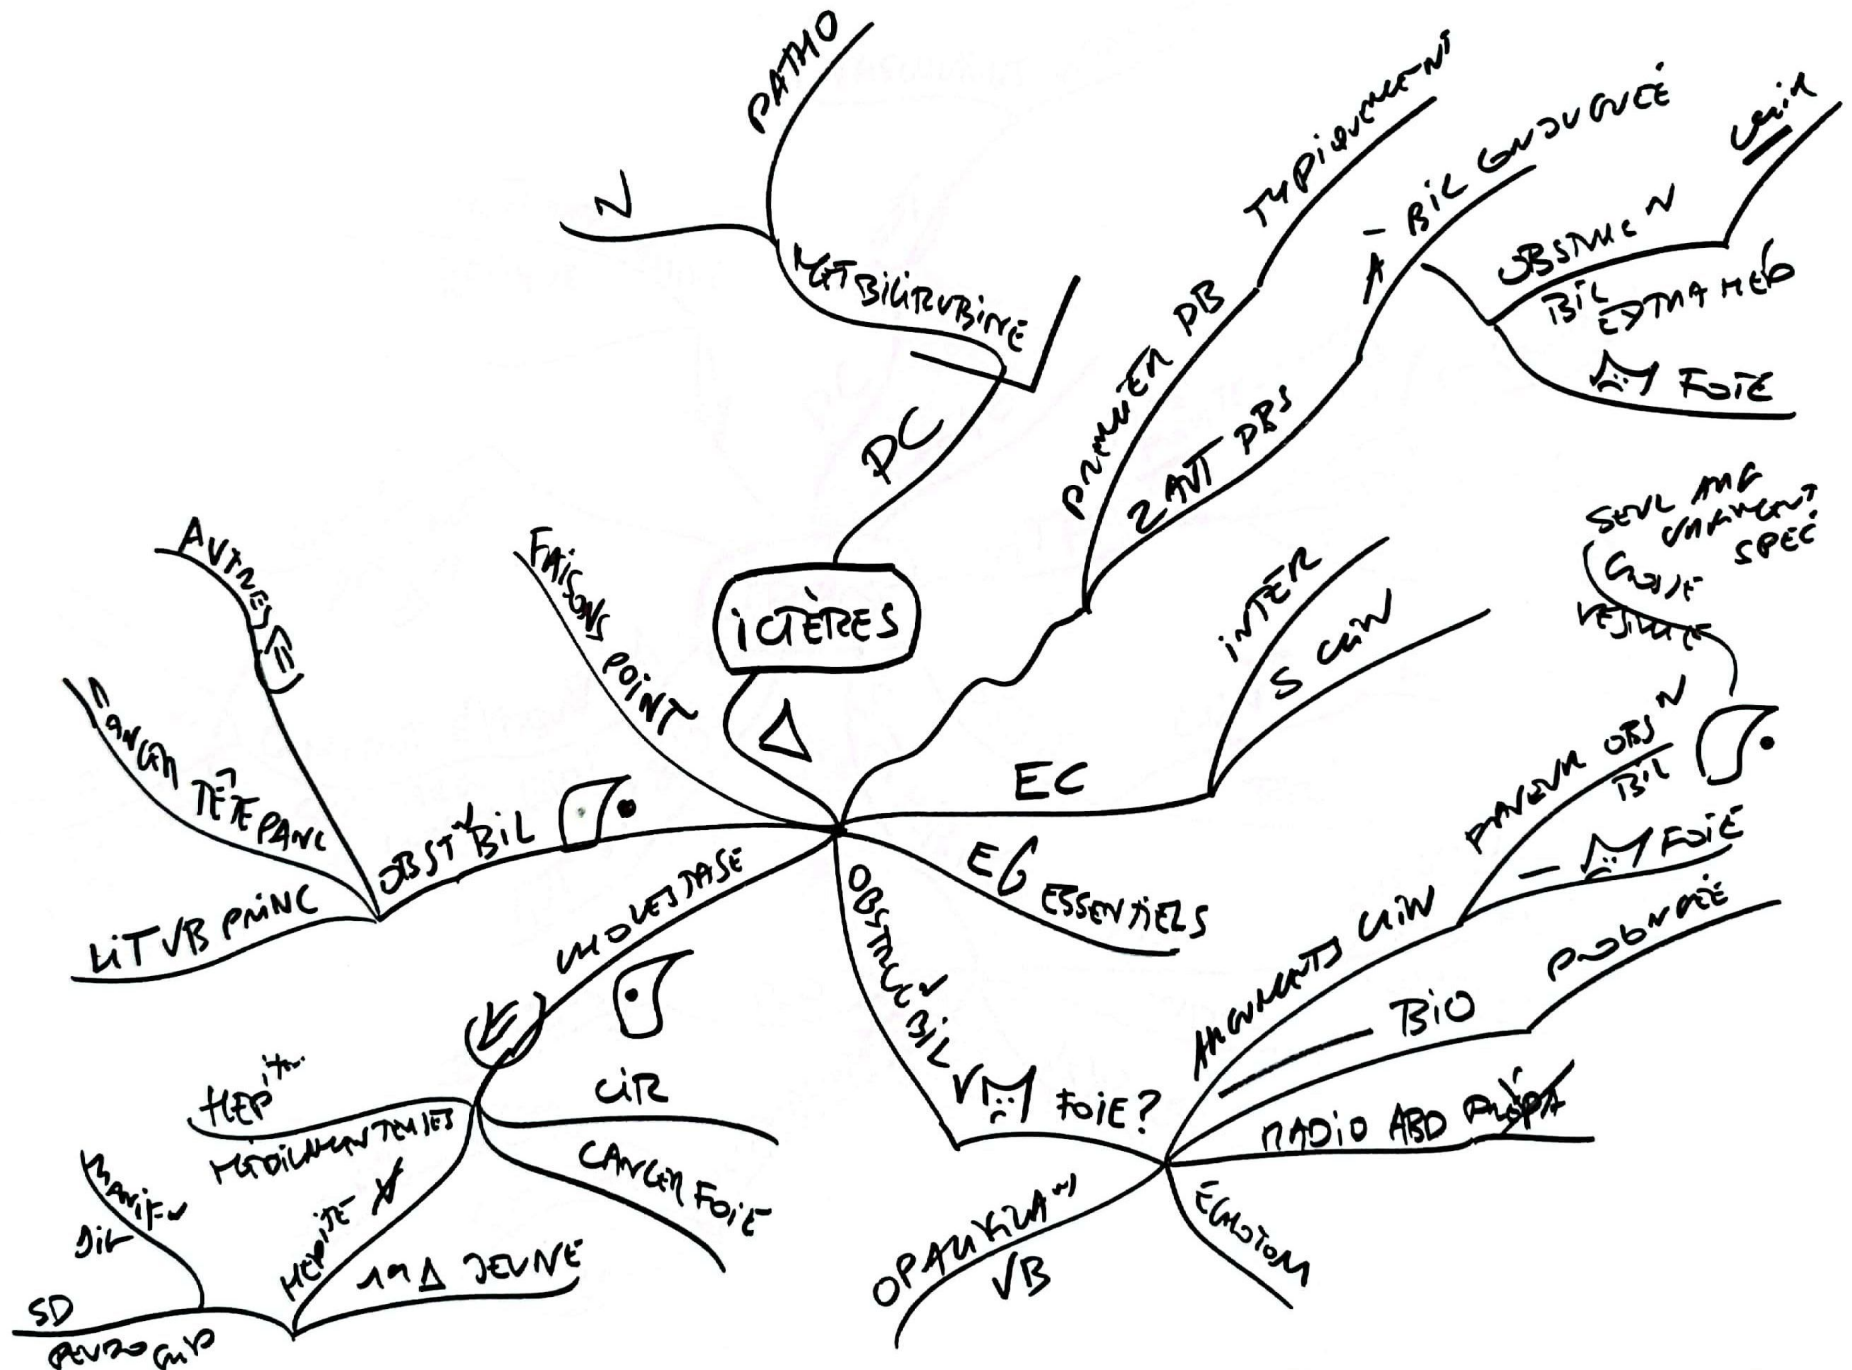 PATHO
N
MET BILIRUBINE
PC
ICTÈRES
Δ
PREMIER PB
TYPIQUEMENT
2 AUT PBS
A - BIL CONJUGUÉE
OBSTRUC N
BIL
EXTRA HEP
CLIN
FOIE
EC
INTER
S CLIN
EG ESSENTIELS
OBSTRUCN BIL
V
FOIE?
ARGUMENTS CLIN
FAVEUR OBS N
BIL
SEUL ARG
VRAIMENT
SPEC
GROSSE
VESICULE
- FOIE
BIO
RADIO ABD
ECHOTOM
OPACIFICA N
VB
CHOLESTASE
CIR
CANCER FOIE
HEP ITES
MÉDICAMENTEUSES
HEP ITE V
1ER Δ JEUNE
MANIF N
DIG
SD
PSEUDO GRIP
OBST N BIL
LIT VB PRINC
CANCER TÊTE PANC
AUTRES
FAISONS POINT